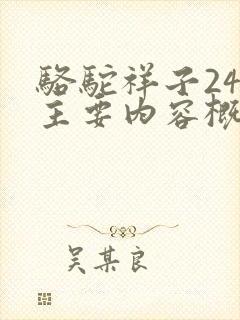 骆驼祥子24
主要内容概
吴某良